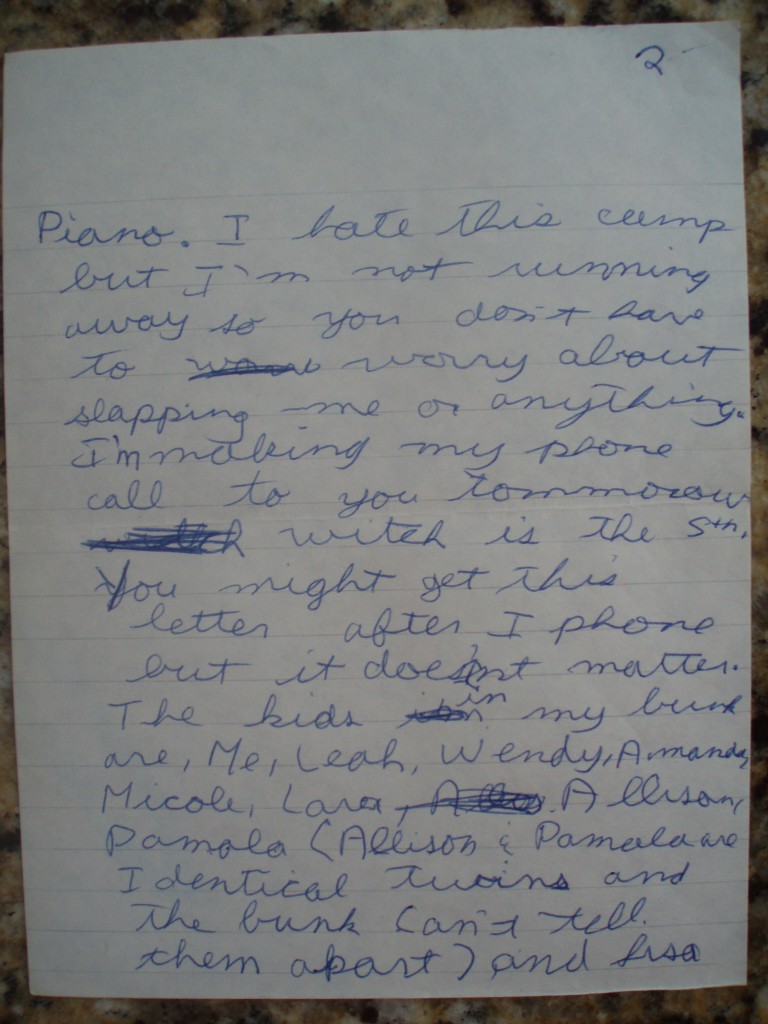 2
Piano. I hate this camp
but I'm not running
away so you don't have
to worry about
slapping me or anything.
I'm making my phone
call to you tommorow
witch is the 5th.
You might get this
letter after I phone
but it does'nt matter.
The kids in my bunk
are, Me, Leah, Wendy, Amanda,
Nicole, Lara, Allison,
Pamala (Allison & Pamala are
Identical twins and
the bunk can't tell
them apart) and Lisa